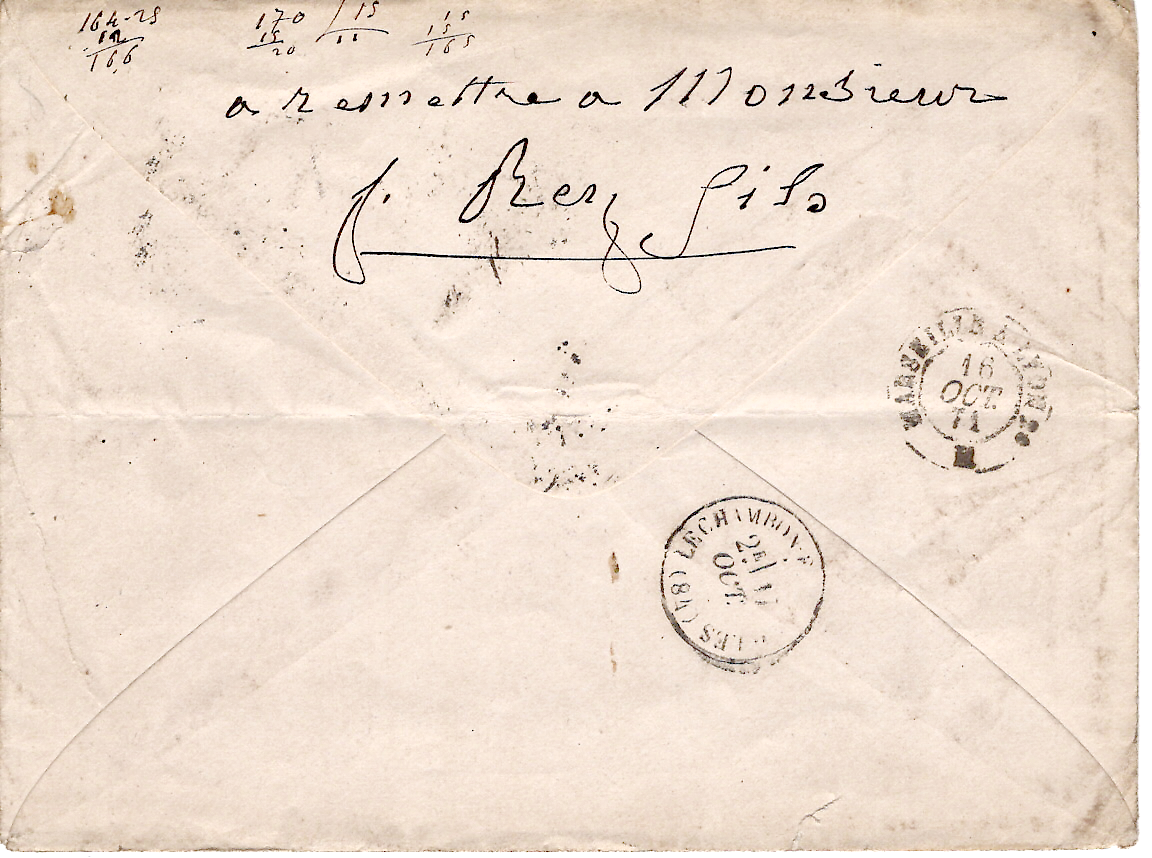 164-25 170 15 15
12 15 11 15
166 20 165
a remettre a Monsieur
f. Rey fils
MARSEILLE A LYON 2°
16
OCT.
71
LE CHAMBON-F
2E / 17
OCT.
LES (84)